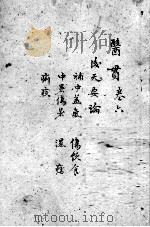 醫貫卷六
後天要論
補中益氣 傷飲食
中暑傷暑 濕 瘧
痢疾